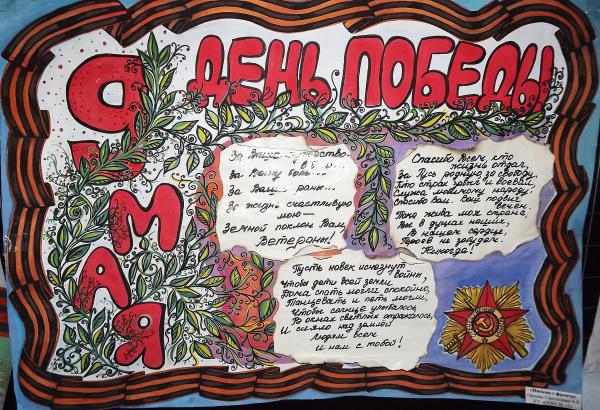 9 МАЯ
ДЕНЬ ПОБЕДЫ
За Ваше
За Вашу боль...
За Ваши раны...
За жизнь счастливую
мою —
Земной поклон Вам,
Ветераны!
Спасибо Всем, кто
жизнь отдал,
За Русь родную, за свободу,
Кто страх забыл и воевал,
Служа любимому народу.
Спасибо Вам, Ваш подвиг
вечен,
Пока жива моя страна,
Вы в душах наших,
В нашем сердце,
Героев не забудем.
Никогда!
Пусть навек исчезнут
войны,
Чтобы дети всей земли
Дома спать могли спокойно,
Танцевать и петь могли,
Чтобы солнце улыбалось,
Во окнах светлых отражалось,
И сияло над землёй
Людям всем
и нам с тобой!
«Письма с фронта»